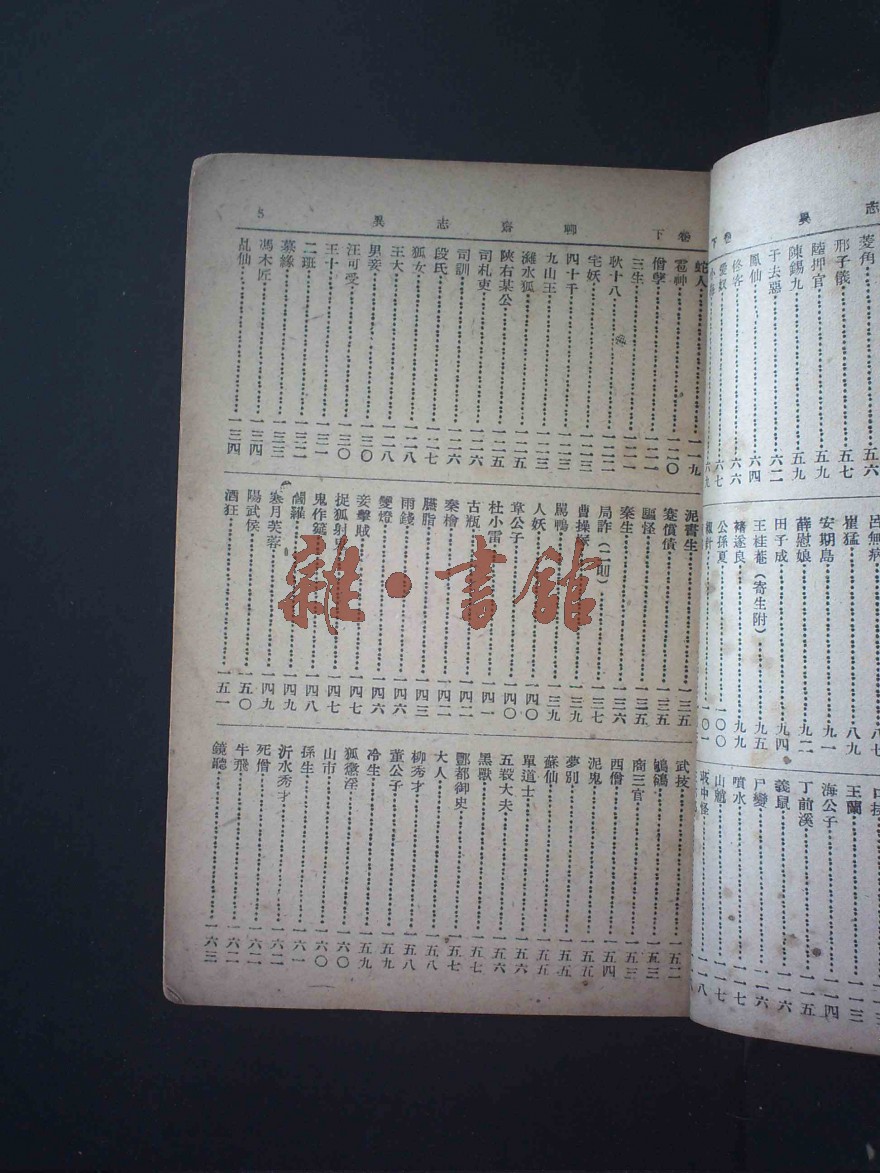 異 志
卷下
菱角
邢子儀……六六
陸押官……五七
陳錫九……五九
于去惡……五九
鳳仙……六四
佟客……六六
愛奴……六七
呂無病……八七
崔猛……八九
安期島……九一
薛慰娘……九二
田子成……九四
王桂菴(寄生附)……九五
褚遂良……九九
公孫夏……一〇〇
王蘭……一一三
海公子……一一四
丁前溪……一一五
義鼠……一一六
尸變……一一六
噴水……一一七
山魈……一一七
異 志 齋 聊
卷下
5
蛇人……一一九
雹神……一二〇
僧孽……一二一
三生……一二一
耿十八……一二二
宅妖……一二三
四十千……一二三
九山王……一二三
濰水狐……一二五
陝右某公……一二五
司札吏……一二六
司訓……一二六
段氏……一二七
狐女……一二八
王大……一二八
男妾……一三〇
汪可受……一三〇
王十……一三一
二班……一三二
募緣……一三三
馮木匠……一三四
乩仙……一三四
泥書生……一三五
蹇償債……一三五
驅怪……一三五
秦生……一三六
局詐(二則)……一三七
曹操塚……一三九
罵鴨……一三九
人妖……一四〇
韋公子……一四〇
杜小雷……一四一
古瓶……一四二
秦檜……一四二
臙脂……一四三
雨錢……一四六
雙燈……一四六
妾擊賊……一四七
捉狐射鬼……一四七
鬼作筵……一四八
閻羅……一四九
寒月芙蓉……一四九
陽武侯……一五〇
酒狂……一五一
武技……一五二
鴝鵒……一五三
商三官……一五三
西僧……一五四
泥鬼……一五五
夢別……一五五
蘇仙……一五五
單道士……一五六
五羖大夫……一五六
黑獸……一五七
酆都御史……一五七
大人……一五八
柳秀才……一五八
董公子……一五九
冷生……一五九
狐懲淫……一六〇
山市……一六〇
孫生……一六一
沂水秀才……一六二
死僧……一六二
牛飛……一六二
鏡聽……一六三
雜·書館